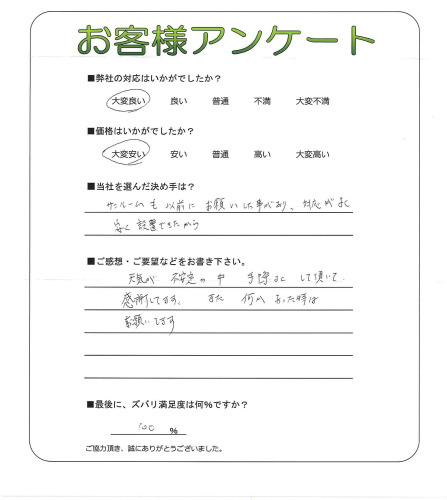 お客様アンケート
■弊社の対応はいかがでしたか?
大変良い 良い 普通 不満 大変不満
■価格はいかがでしたか?
大変安い 安い 普通 高い 大変高い
■当社を選んだ決め手は?
サンルームも以前にお願いした事があり、対応がよく
安く設置できたから
■ご感想・ご要望などをお書き下さい。
天気が不安定の中 手際よくして頂いて
感謝してます。また何かあった時は
お願いします
■最後に、ズバリ満足度は何%ですか?
100 %
ご協力頂き、誠にありがとうございました。